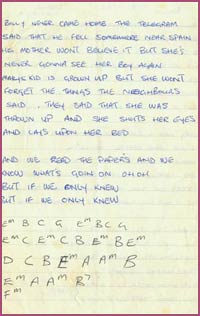 BILLY NEVER CAME HOME. THE TELEGRAM
SAID THAT HE FELL SOMEWHERE NEAR SPAIN
HIS MOTHER WONT BELIEVE IT BUT SHE'S
NEVER GONNA SEE HER BOY AGAIN
MARYS KID IS GROWN UP BUT SHE WON'T
FORGET THE THINGS THE NEIGHBOURS
SAID.. THEY SAID THAT SHE WAS
THROWN UP AND SHE SHUTS HER EYES
AND LAYS UPON HER BED
AND WE READ THE PAPERS AND WE
KNOW WHAT'S GOIN ON OH OH
BUT IF WE ONLY KNEW
BUT IF WE ONLY KNEW
Em B C G Em B C G
Em C Em C B Em B Em
D C B Em A Am B
Em A Am B7
Fm